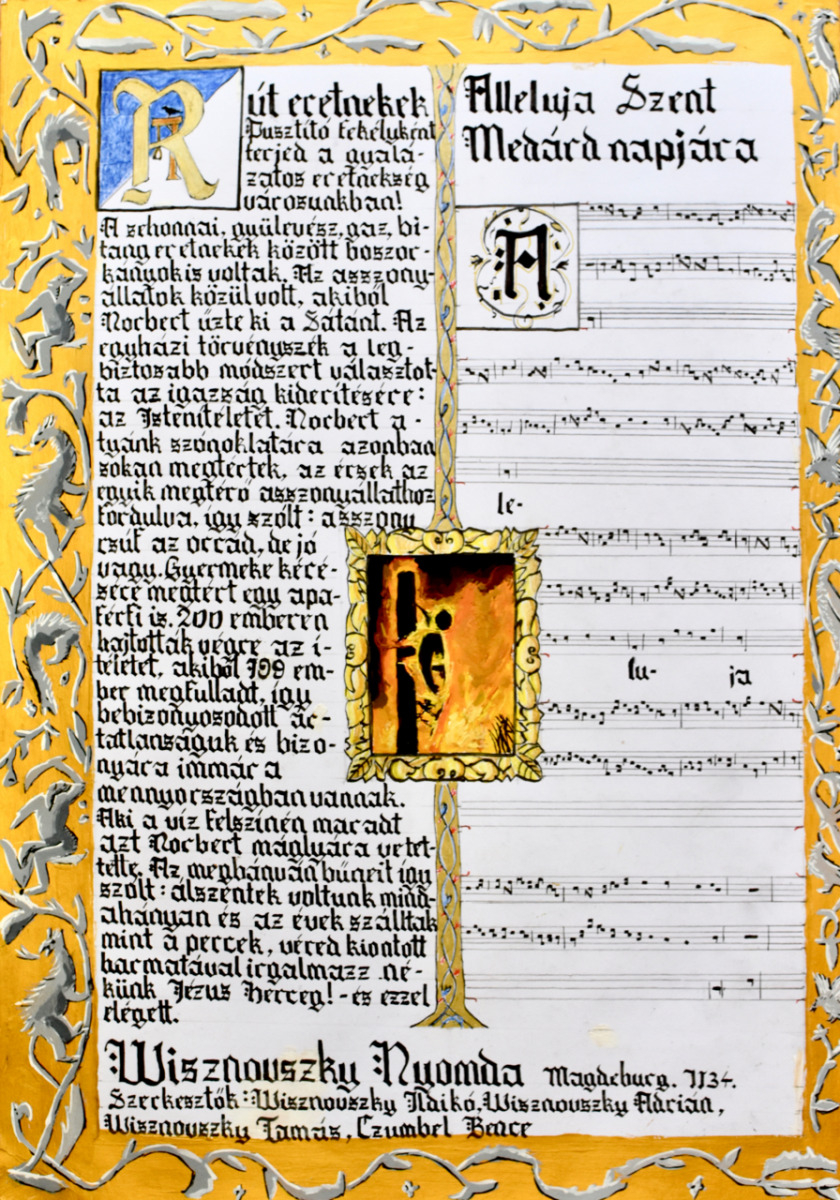 Rút eretnekek
Pusztító fekélyként
terjed a gyalá-
zatos eretnekség
városunkban!
A sehonnai, gyülevész, gaz, bi-
tang eretnekek között boszor-
kányok is voltak. Az asszony-
állatok közül volt, akiből
Norbert űzte ki a Sátánt. Az
egyházi törvényszék a leg-
biztosabb módszert választot-
ta az igazság kiderítésére:
az Istenítéletet. Norbert a-
tyánk szónoklatára azonban
sokan megtértek, az érsek az
egyik megtérő asszonyállathoz
fordulva, így szólt: asszony
csúf az orcád, de jó
vagy. Gyermeke kéré-
sére megtért egy apa-
férfi is. 200 emberen
hajtották végre az í-
téletet, akiből 199 em-
ber megfulladt, így
bebizonyosodott ár-
tatlanságuk és bizo-
nyára immár a
mennyországban vannak.
Aki a víz felszínén maradt
azt Norbert máglyára vetet-
tette. Az megbánván bűneit így
szólt: álszentek voltunk mind-
ahányan és az évek szálltak
mint a percek, véred kiontott
harmatával irgalmazz né-
künk Jézus Herceg! - és ezzel
elégett.
Alleluja Szent
Medárd napjára
A
le-
lu- ja
Wisznovszky Nyomda Magdeburg. 1134.
Szerkesztők: Wisznovszky Ildikó, Wisznovszky Adrián,
Wisznovszky Tamás, Czumbel Bence